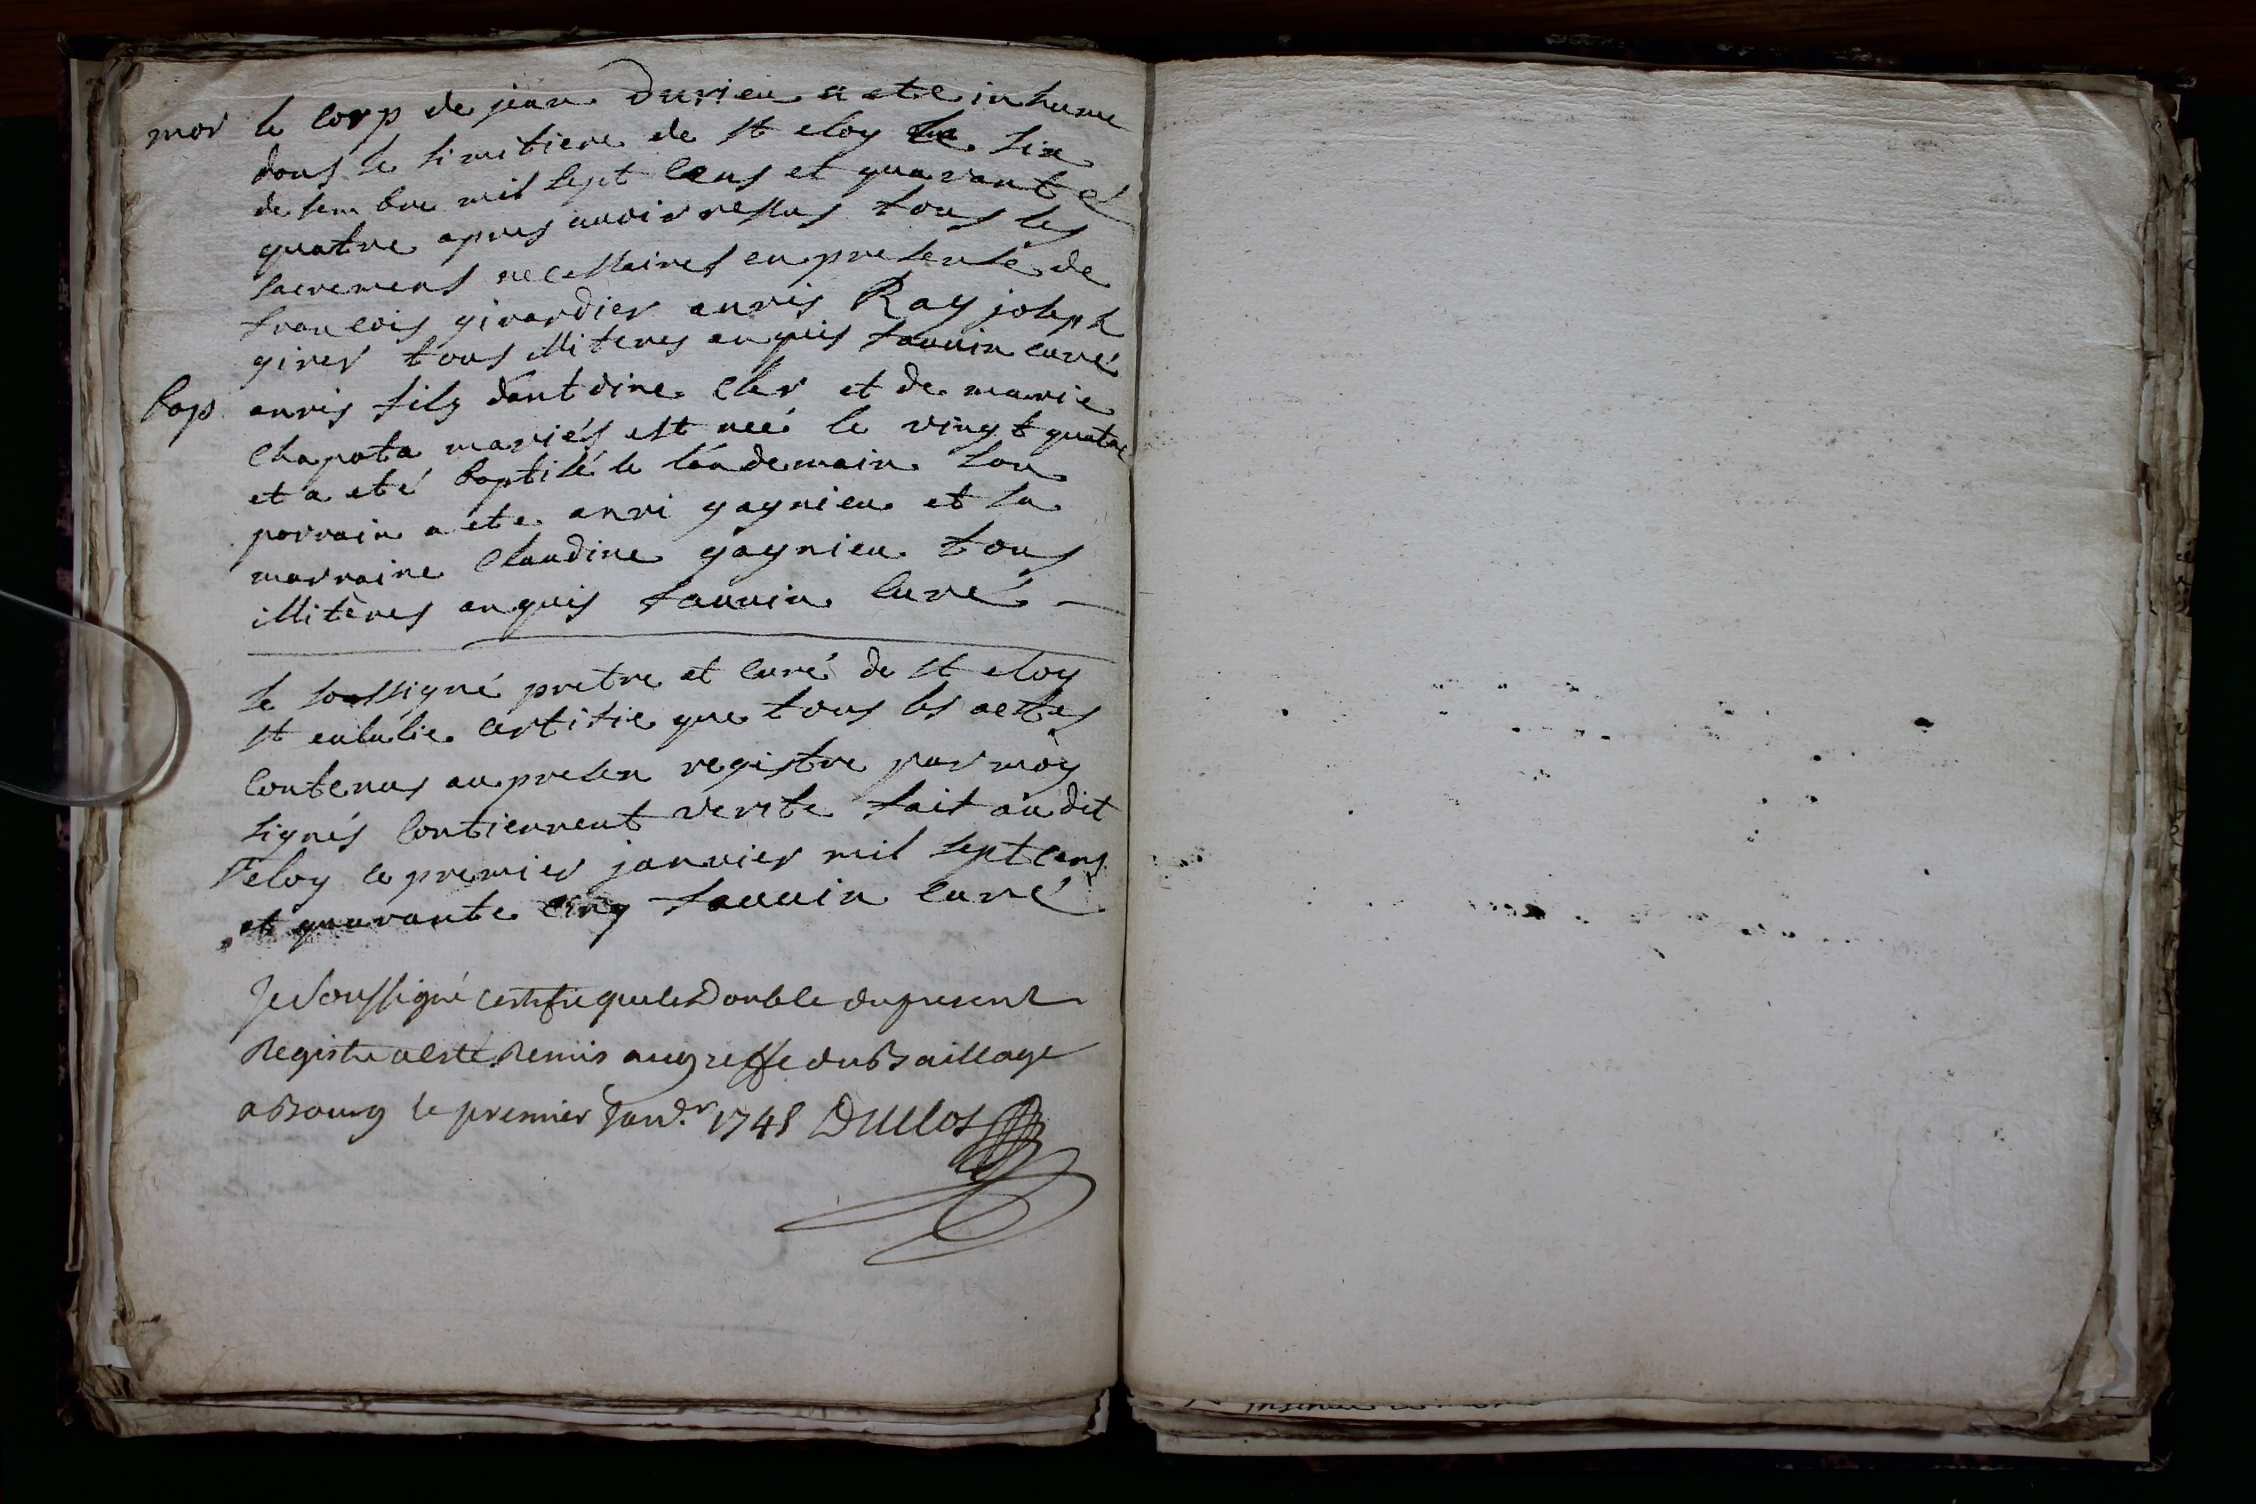 mor le corp de jean Durieu a ete inhume
dans le simitiere de st eloy le six
desembre mil sept cens et quarante
quatre apres auoir ressus tous les
sacremens necessaires en presense de
francois girardier anris Ray joseph
girer tous illiteres enquis fauuin curé
bap anris filz dantoine cler et de marie
chapota mariés est neé le vingt quatre
et a eté baptisé le landemain son
parrain a ete anri gagnieu et sa
marraine claudine gagnieu tous
illitères enquis fauuin curé
le soussigné pretre et curé de st eloy
st eulalie certifie que tous les actes
contenus au presen registre par moy
signés contiennent verite fait audit
st eloy le premier januier mil sept cens
et quarante cinq fauuin curé
Je Soussigné certifie que le Double du present
Registre a esté Remis au greffe du Baillage
a Bourg le premier Janv.r 1745 Duclos